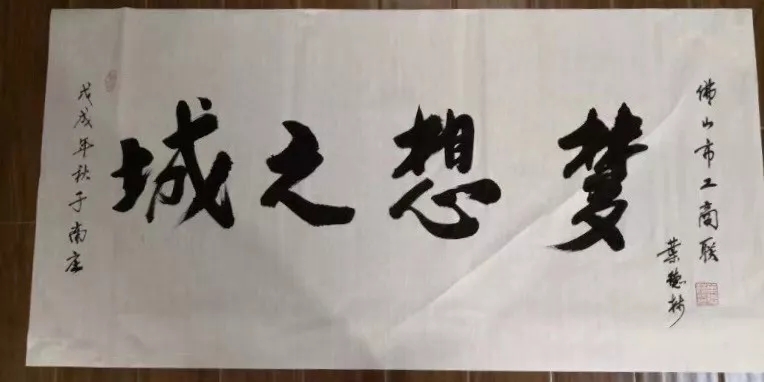 佛山市工商联
葉德
梦想之城
戊戌年秋于南庄